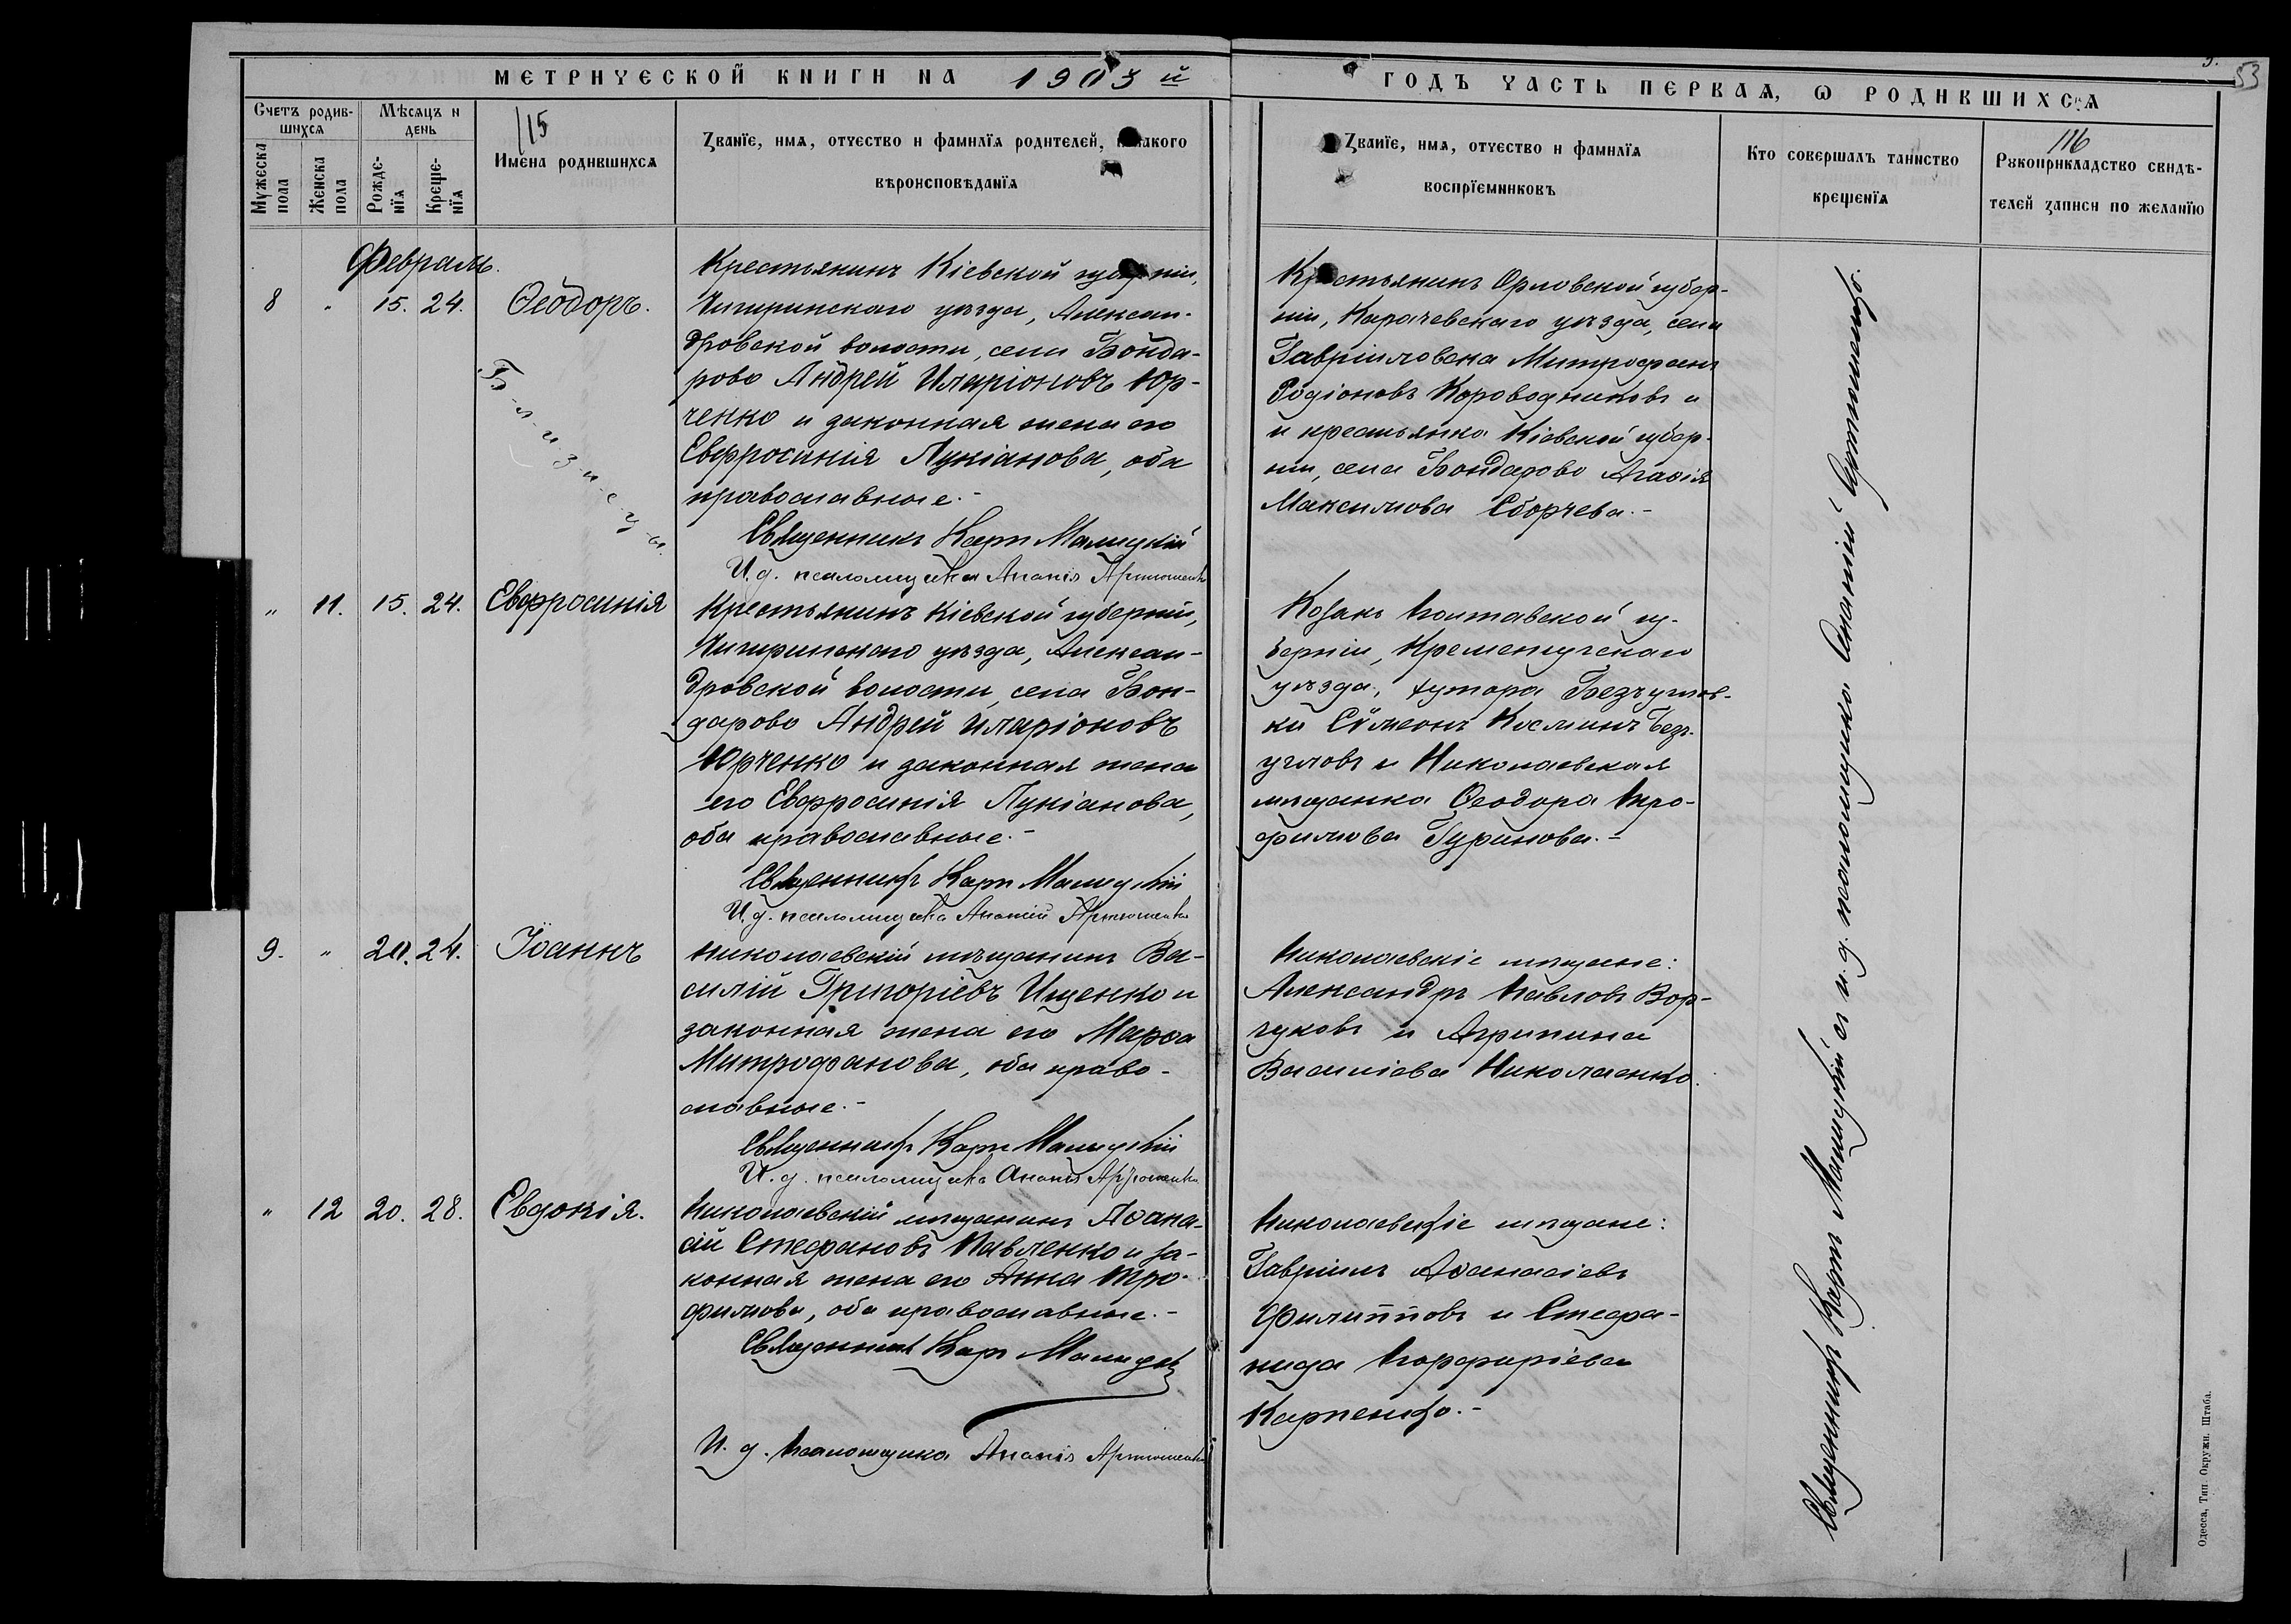 МЕТРИЧЕСКОЙ КНИГИ НА 1903 й
ГОДЪ ЧАСТЬ ПЕРВАЯ, Ѡ РОДИВШИХСЯ
53
Счетъ родив-
шихся
Мѣсяцъ и
день
115
Имена родившихся
Мужеска
пола
Женска
пола
Рожде-
нїя
Креще-
нїя
Званїе, имя, отчество и фамилїя родителей, и какого
вѣроисповѣданїя
Званїе, имя, отчество и фамилїя
воспрїемниковъ
Кто совершалъ таинство
крещенїя
116
Рукоприкладство свидѣ-
телей записи по желанїю
Февраль.
8 " 15. 24. Ѳеодоръ.
Близнецы.
Крестьянинъ Кіевской губерніи,
Чигиринскаго уѣзда, Алексан-
дровской волости, села Бонда-
рово Андрей Иларіоновъ Юр-
ченко и законная жена его
Евфросинія Лукіанова, оба
православные.-
Священникъ Карп Малицкій
И. д. псаломщика Ананія Артюшенко
Крестьянинъ Орловской губер-
ніи, Карачевскаго уѣзда, села
Гавріиловска Митрофанъ
Родіоновъ Короводниковъ и
и крестьянка Кіевской губер-
ніи, села Бондарово Агафія
Максимова Сборчева.-
" 11. 15. 24. Евфросинія
Крестьянинъ Кіевской губерніи,
Чигиринскаго уѣзда, Алексан-
дровской волости, села Бон-
дарово Андрей Иларіоновъ
Юрченко и законная жена
его Евфросинія Лукіанова,
оба православные.-
Священникъ Карп Малицкій
И. д. псаломщика Ананій Артюшенко
Козакъ Полтавской гу-
берніи, Кременчугскаго
уѣзда, хутора Безуглов-
ки Сѵмеонъ Косминъ Без-
угловъ и Николаевская
мѣщанка Ѳеодора Тро-
фимова Гуринова.-
9. " 20. 24. Іоаннъ
Николаевскій мѣщанинъ Ва-
силій Григоріевъ Ищенко и
законная жена его Марѳа
Митрофанова, оба право-
славные.-
Священникъ Карп Малицкій
И. д. псаломщика Ананія Артюшенко
Николаевскіе мѣщане:
Александръ Павловъ Вор-
чуковъ и Агрипина
Василіева Николаенко.
" 12 20. 28. Евдокія.
Николаевскій мѣщанинъ Аѳана-
сій Стефановъ Павленко и за-
конная жена его Анна Тро-
фимова, оба православные.-
Священникъ Карп Малицкій
И. д. псаломщика Ананія Артюшенко
Николаевскіе мѣщане:
Гавріилъ Аѳанасіевъ
Филипповъ и Стефа-
нида Порфиріева
Карпенко.-
Священникъ Карпъ Малицкій съ и. д. псаломщика Ананіей Артюшенко.
Одесса, Тип. Окружн. Штаба.